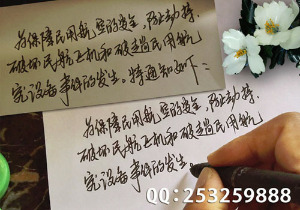 为保障民用航空的安全，防止劫持、
破坏民航飞机和破坏民用航
空设备事件的发生。特通知如下：
为保障民用航空的安全，防止劫持、
破坏民航飞机和破坏民用航
空设备事件的发生。
QQ:253259888